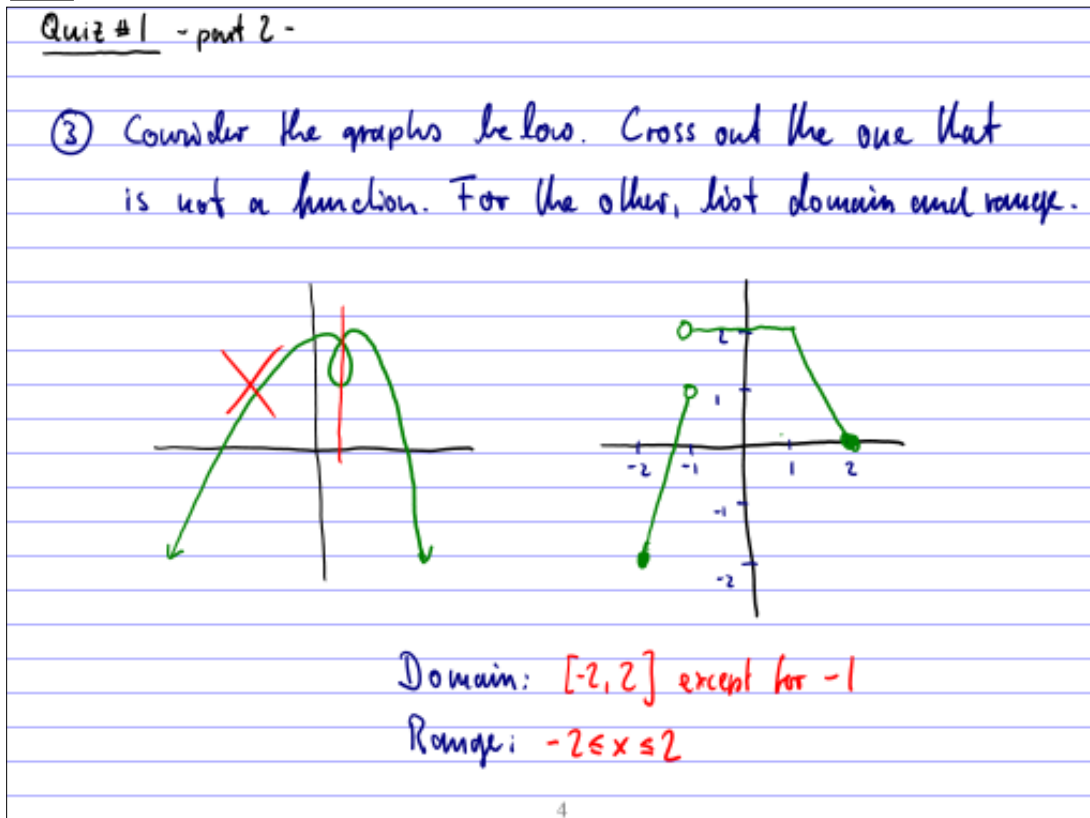 Quiz #1 - part 2 -
③ Consider the graphs below. Cross out the one that
is not a function. For the other, list domain and range.
2
1
-2 -1 1 2
-1
-2
Domain: [-2, 2] except for -1
Range: -2 ≤ x ≤ 2
4